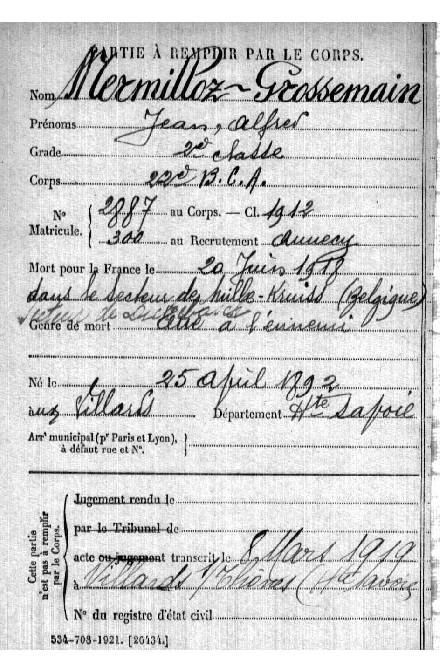 PARTIE À REMPLIR PAR LE CORPS.
Nom Mermilloz-Grossemain
Prénoms Jean, Alfred
Grade 2e classe
Corps 22e B.C.A.
N° Matricule. { 2887 au Corps. — Cl. 1912
300 au Recrutement Annecy
Mort pour la France le 20 Juin
dans le secteur de Kruiss (Belgique)
Secteur de
Genre de mort tué à l'ennemi
Né le 25 April 1892
aux Villards Département Hte Savoie
Arrt municipal (pr Paris et Lyon), à défaut rue et N°.
Cette partie n'est pas à remplir par le Corps.
Jugement rendu le
par le Tribunal de
acte ou jugement transcrit le 8 Mars 1919
à Villards s/Thônes (Hte Savoie)
N° du registre d'état civil
534-708-1921. [26434.]